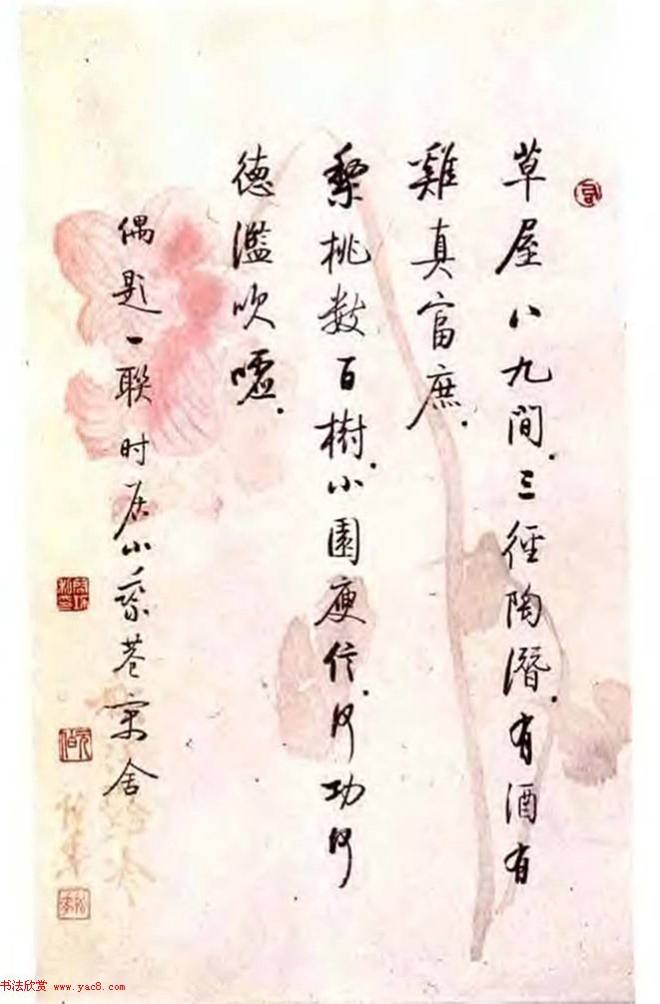 草屋八九間.三徑陶潛.有酒有
雞真富庶.
梨桃数百樹.小園庾信.何功何
德濫吹噓.
偶題一聯时居小乘巷寓舍
书法欣赏 www.yac8.com